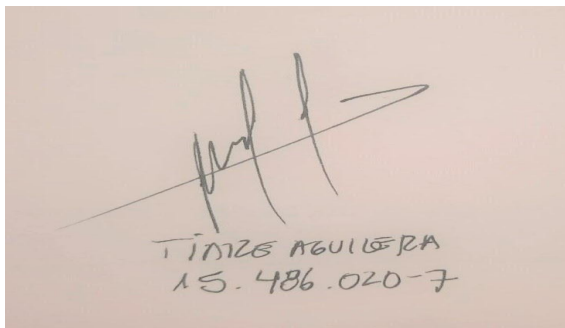 TIARE AGUILERA
15.486.020-7